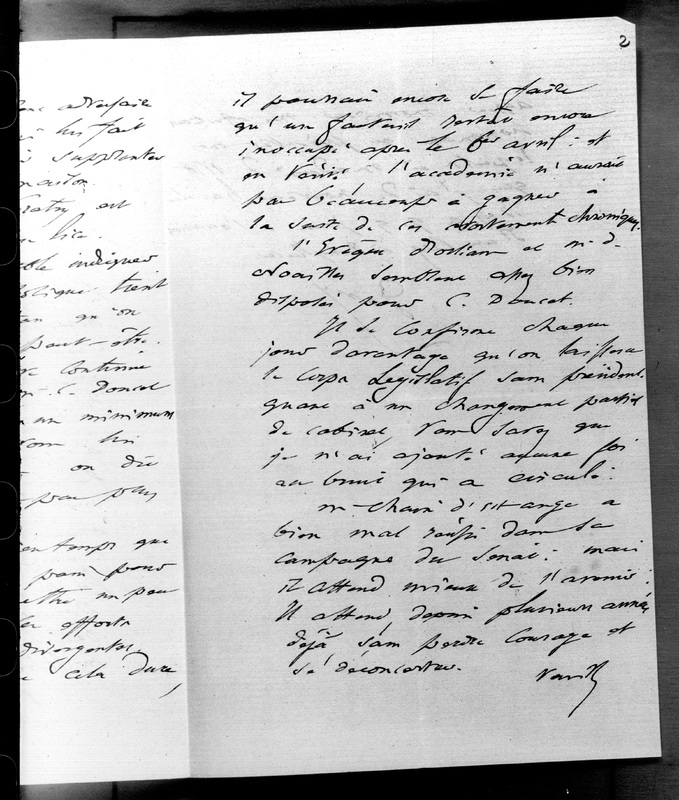 2
adversaire
fait
supplanter
est
lice.
indiquer
tient
qu'on
peut-être.
continue
C. Doucet
un minimum
lui
on dit
peu plus
temps que
pour
un peu
efforts
divergents,
cela dure,
il pourrait encore se faire
qu'un fauteuil restât encore
inoccupé après le 6er avril : et
en vérité l'académie n'aurait
pas beaucoup à gagner à
la suite de ces avortements chroniques.
l'Evêque d'Orléans et m. de
Noailles semblent assez bien
disposés pour C. Doucet.
Il se confirme chaque
jour davantage qu'on laissera
le corps Législatif sans président.
quant à un changement partiel
de cabinet, vous savez que
je n'ai ajouté aucune foi
au bruit qui a circulé.
m. Chaix d'est ange a
bien mal réussi dans sa
campagne du Senat : mais
il attend mieux de l'avenir :
Il attend, depuis plusieurs années
déjà sans perdre courage et
se déconcerter.